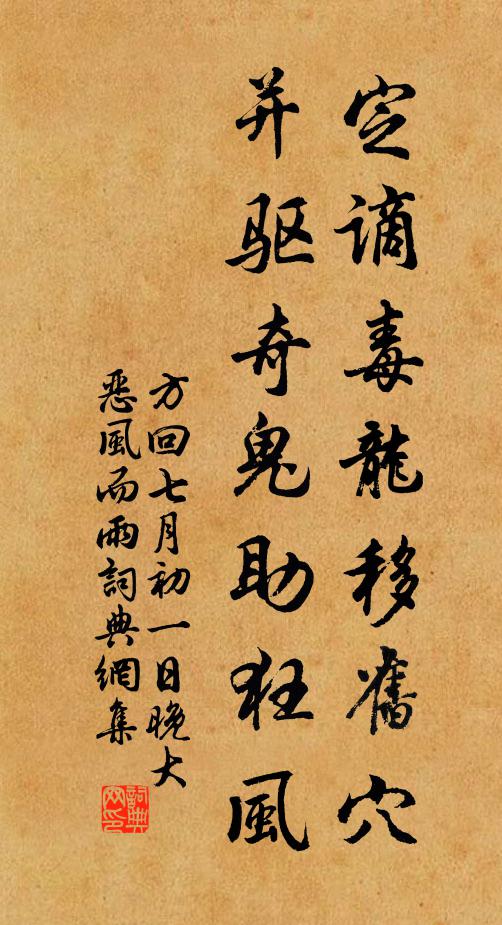 定謫毒龍移舊穴
并驱奇鬼助狂風
方回七月初一日晚大
惡風而雨詞典網集
詞典網印